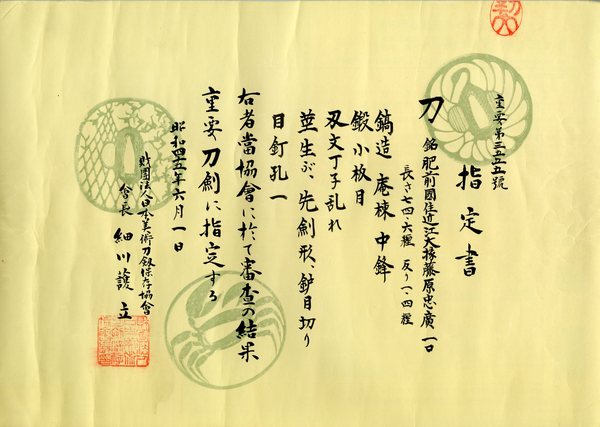 重要第三五五五號
指定書
刀 銘 肥前國住近江大掾藤原忠廣 一口
長さ七四・六糎 反り一・四糎
鎬造 庵棟 中鋒
鍛 小板目
刃文丁子乱れ
茎生ぶ、先剣形、鑢目切り
目釘孔一
右者當協會に於て審査の結果
重要刀剣に指定する
昭和四五年六月一日
財團法人日本美術刀剣保存協會
會長 細川護立